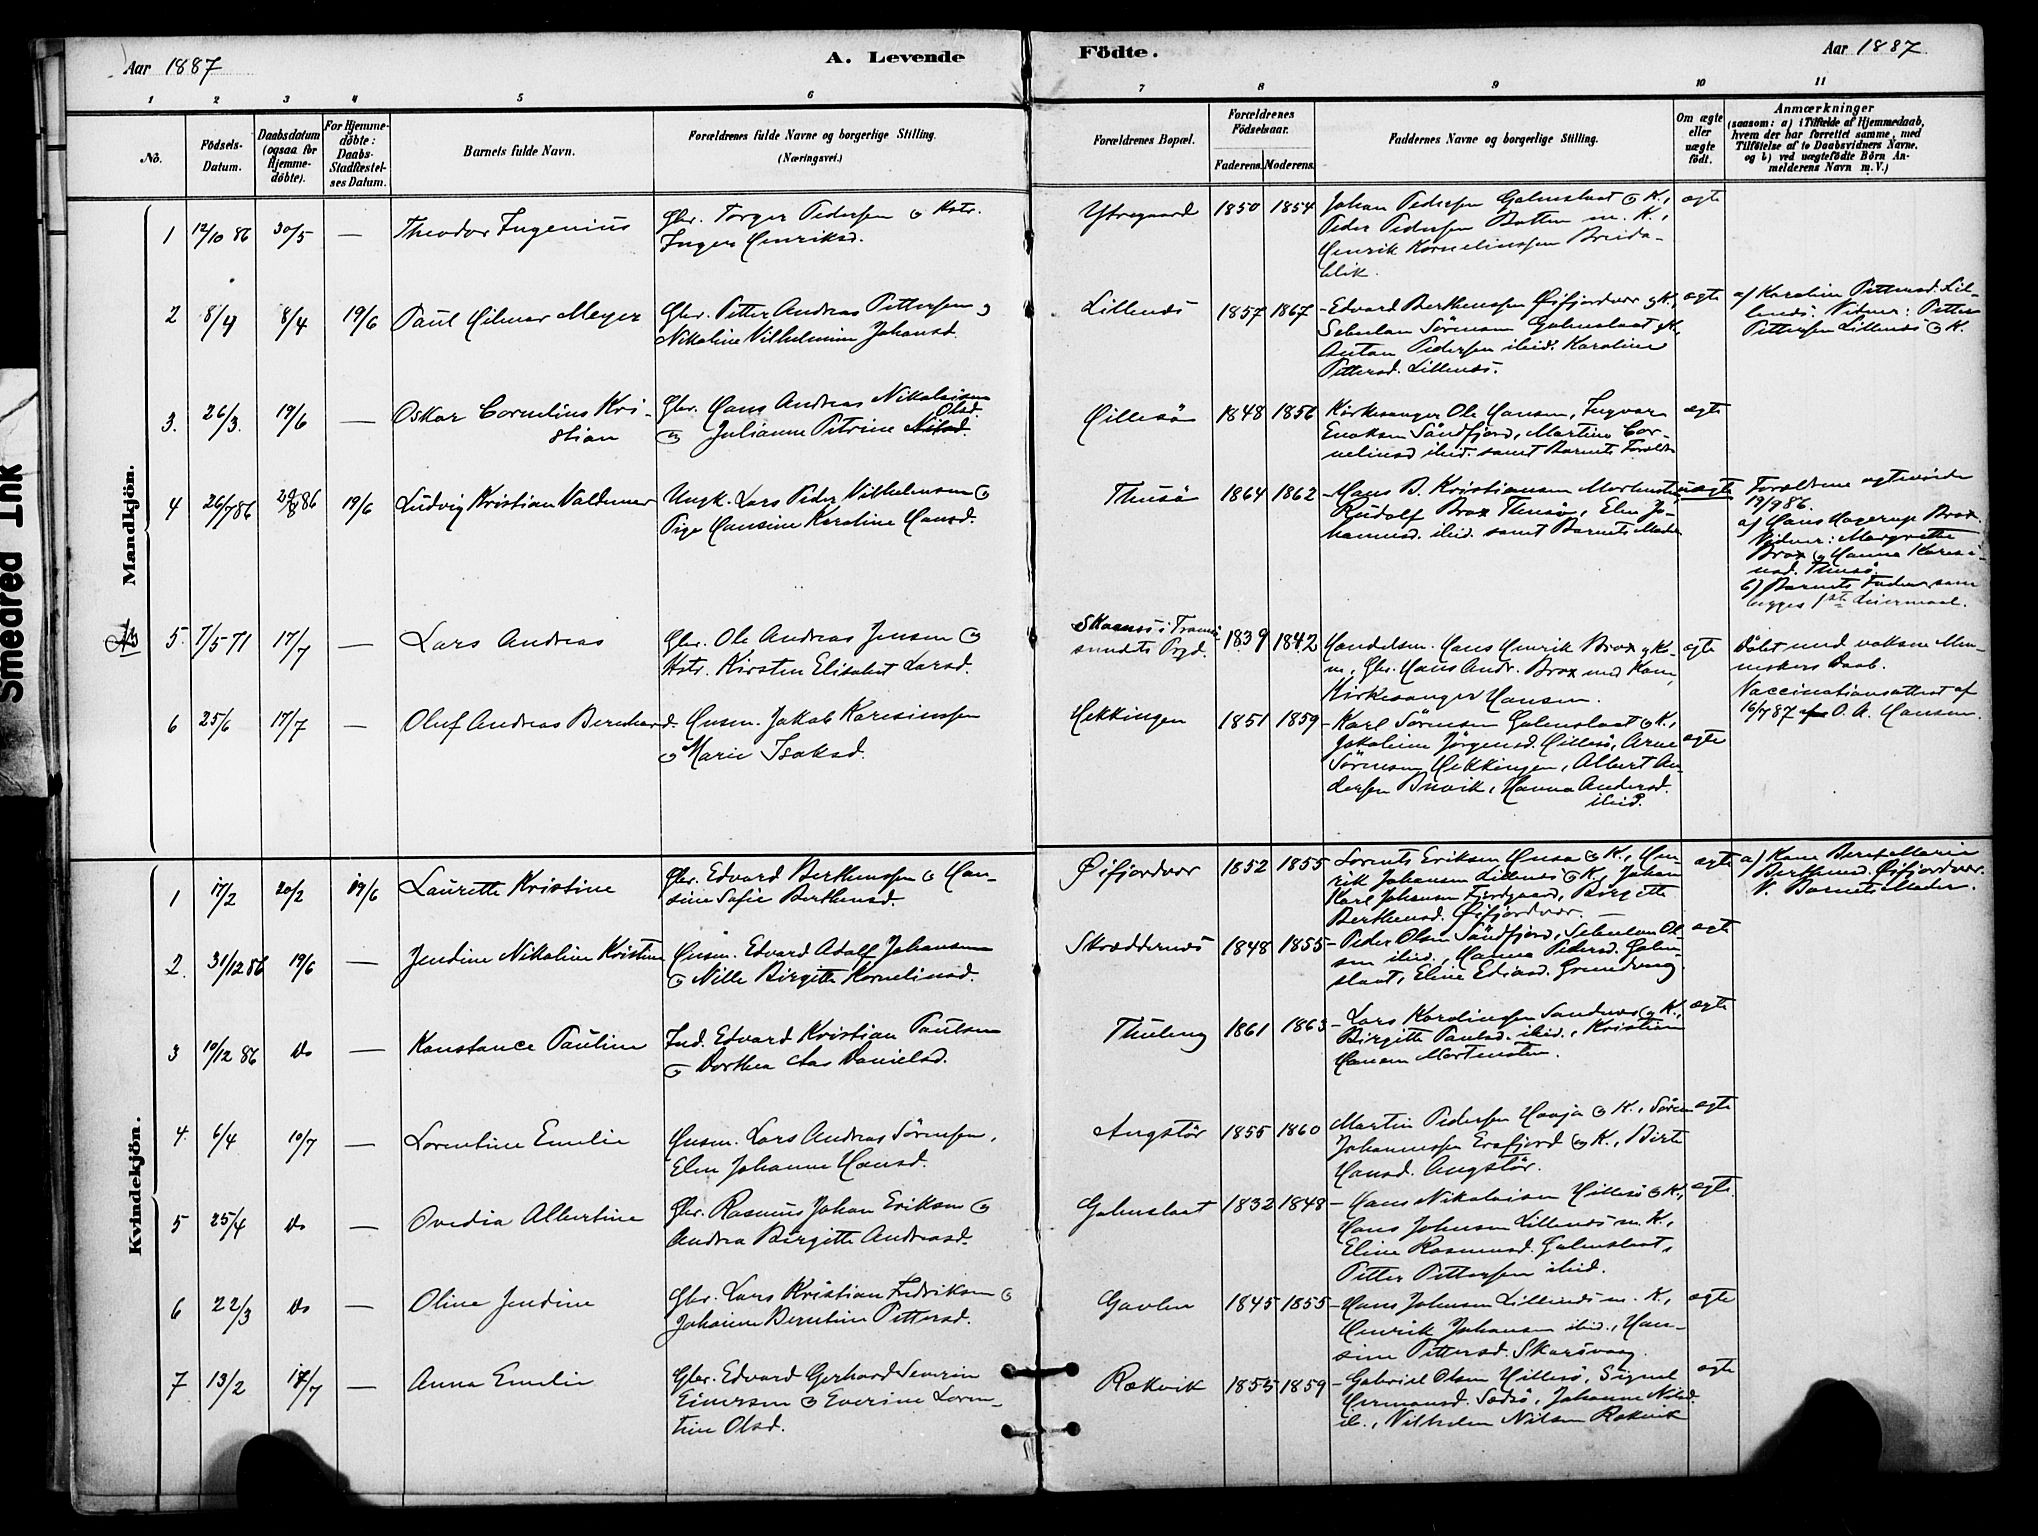 Aar 1887
A. Levende
Födte.
Aar 1887
1 2 3 4 5 6 7 8 9 10 11
No.
Födsels-
Datum.
Daabsdatum
(ogsaa for
Hjemme-
döbte).
For Hjemme-
döbte:
Daabs-
Stadfæstel-
ses Datum.
Barnets fulde Navn.
Forældrenes fulde Navne og borgerlige Stilling.
(Næringsvei.)
Forældrenes Bopæl.
Forældrenes
Födselsaar.
Faderens.
Moderens.
Faddernes Navne og borgerlige Stilling.
Om ægte
eller
uægte
födt.
Anmærkninger
(saasom: a) i Tilfælde af Hjemmedaab,
hvem der har forrettet samme, med
Tilföielse af to Daabsvidners Navne.
og b) ved uægtefödte Börn An-
melderens Navn m.V.)
Smeared Ink
Mandkjön.
1 12/10 86 30/5 — Theodor Ingenius
Gbr. Torger Pedersen & Kstr.
Inger Henriksd.
Ytregaard 1850 1854
Johan Pedersen Galmslaat & K.,
Peder Pedersen Botten m. K.,
Henrik Kornelinssen Breida-
blik.
ægte
2 8/4 8/4 19/6 Paul Hilmar Meyer
Gbr. Petter Andreas Pettersen &
Nikoline Vilhelmine Johansd.
Lillenes 1857 1867
Edvard Berthenssen Øifjordvær & K.,
Sebulon Sörensen Galmslaat & K.
Anton Pedersen ibid. Karoline
Pettersd. Lillenes.
ægte
a) Karoline Pettersd. Lil-
lenes. Vidner: Petter
Pettersen Lillenes & K.
3. 26/3. 19/6 — Oskar Cornelius Kri-
stian
Gbr. Hans Andreas Nikolaisen
& Julianne Petrine Olsd.
Hillesö 1848 1856
Kirkesanger Ole Hansen, Ingvar
Enoksen Sandfjord, Martine Cor-
neliusd ibid. samt Barnets Forældre
ægte
4 26/7 86 29/8 86 19/6 Ludvig Kristian Valdemar
Ungk. Lars Peder Vilhelmsen &
Pige Hansine Karoline Hansd.
Thusö 1864 1862
Hans B. Kristiansen Mortensten
Rudolf Brox Thusö, Elen Jo-
hannesd. ibid. samt Barnets Moder
uægte
Forældrene ægteviede
19/9 86.
a) Hans Hagerup Brox.
Vidner: Margrethe
Brox & Hanna Karesi-
usd. Thusö.
b) Barnets Fader som
begges 1ste Leiermaal.
5. 7/5 71 17/7 — Lars Andreas
Gbr. Ole Andreas Jensen &
Kstr. Kirsten Elisabet Larsd.
Skaanes i Tromsö-
sundets Prgd. 1839 1842
Handelsm. Hans Henrik Brox & K.
m, Gbr. Hans Andr. Brox med Kone,
Kirkesanger Hansen.
ægte
Döbt med voksne Men-
neskers Daab.
Vaccinationsattest af
16/7 87 af O. A. Hansen.
6 25/6 17/7 — Oluf Andreas Bernhard
Husm. Jakob Karesiussen
& Marie Isaksd.
Hekkingen 1851 1859
Karl Sörensen Galmslaat & K.,
Jakobine Jörgensd. Hillesö, Arne
Sörensen Hekkingen, Albert An-
dersen Buvik, Hanna Andersd.
ibid.
ægte
Kvindekjön.
1 17/2 20/2 19/6 Laurette Kristine
Gbr. Edvard Berthenssen & Han-
sine Sofie Berthensd.
Øifjordvær 1852 1855
Lorents Eriksen Husö & K., Hen-
rik Johansen Lillenes & K., Johan
Karl Johansen Fjordgaard, Birgitte
Berthensd. Øifjordvær.
ægte
a) Kone Beret Marie
Berthensd. Øifjordvær.
V. Barnets Moder.
2. 31/12 86 19/6 — Jendine Nikoline Kristine
Husm. Edvard Adolf Johansen
& Nille Birgitte Korneliusd.
Skræddernes 1848 1855
Peder Olsen Sandfjord, Sebulon Ol-
sen ibid., Hanna Pedersd. Galm-
slaat, Eline Ediasd. Grundvaag
ægte
3 10/12 86 Do — Konstance Pauline
Ind. Edvard Kristian Paulsen
& Dorthea Aas Danielsd.
Thuleng 1861 1863
Lars Kordinssen Sandnes & K.,
Birgitte Paulsd. ibid., Kristian
Hansen Mortensten.
ægte
4. 6/4 10/7 — Lorentine Emelie
Husm. Lars Andreas Sörensen,
Elen Johanne Hansd.
Angstör 1855 1860
Martin Pedersen Havja & K., Sören
Johannessen Ersfjord & K., Birte
Hansd. Angstör.
ægte
5 25/4 Do — Ovedia Albertine
Gbr. Rasmus Johan Eriksen &
Andrea Birgitte Andreasd.
Galmslaat 1832 1848
Hans Nikolaisen Hillesö & K.,
Hans Johnsen Lillenes m. K.,
Eline Rasmusd. Galmslaat,
Petter Pettersen ibid.
ægte.
6 22/3 Do — Oline Jendine
Gbr. Lars Kristian Fredriksen &
Johanne Berntine Pettersd.
Gavlen 1845 1855
Hans Johnsen Lillenes m. K.,
Henrik Johansen ibid., Han-
sine Pettersd. Skarsvaag
ægte
7 13/2 17/7 — Anna Emelie
Gbr. Edvard Gerhard Severin
Einersen & Everine Loren-
tine Olsd.
Rækvik 1855 1859
Gabriel Olsen Hillesö, Signel
Hermansd. Sedsö, Johanne Nilsd.
ib., Vilhelm Nilsen Rækvik
ægte